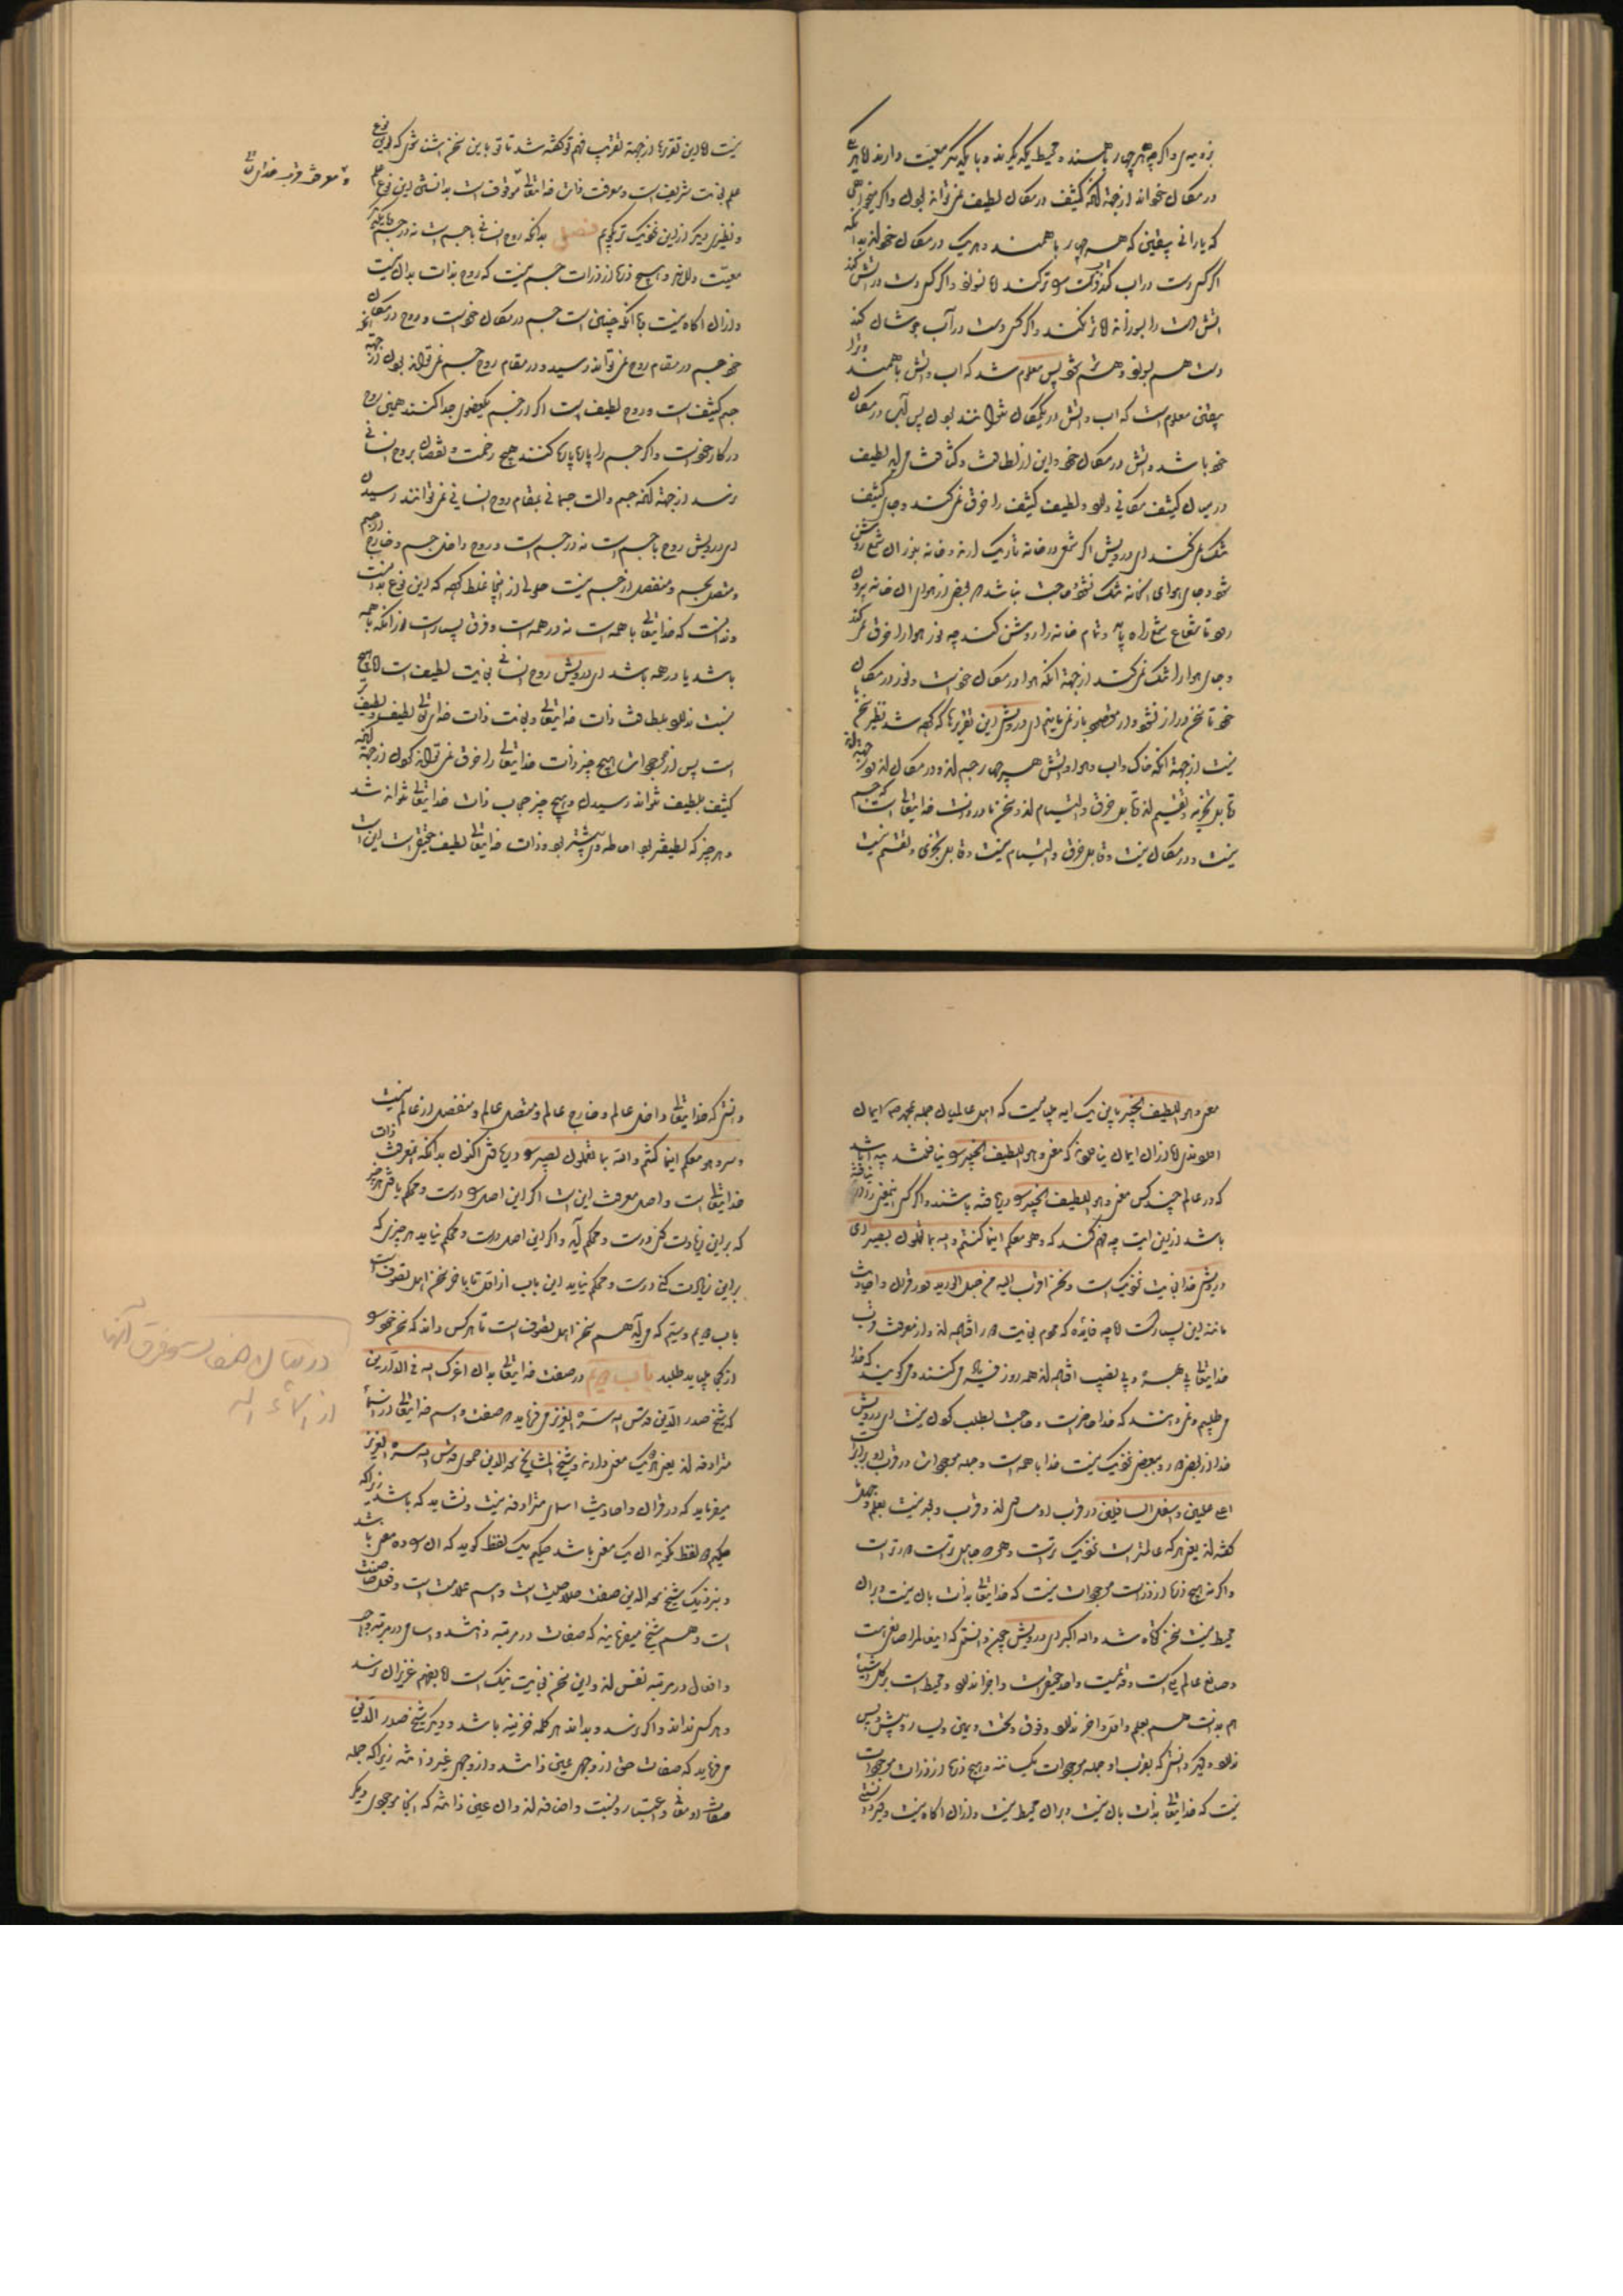 بزنبدی و اگرچه هر چهار با همند و محیط یکدیگرند و با یکدیگر معیت دارند اما هر یکی
در مکان خوداند از جهة آنکه کثیف در مکان لطیف نمی‌تواند بود و اگر میخواهی
که بدانی بیقین که هر چهار با همند و هر یک در مکان خوداند بدانکه
اگر کسی دست در آب کند دست تر کند اما نسوزد و اگر کسی دست در آتش کند
آتش دست را بسوزاند اما تر نکند و اگر کسی دست در آب جوشان کند
دست هم بسوزد و هم تر شود پس معلوم شد که آب و آتش با همند و ترا
بیقین معلوم است که آب و آتش در یک مکان نتوانند بود پس آب در مکان
خود باشد و آتش در مکان خود و این از لطافت و کثافت مر لطیف
در میان کثیف مکانی دارد و لطیف کثیف را خرق نمی‌کند و جای کثیف
تنگ نمی‌کند ای درویش اگر شمع در خانه تاریک آرند و خانه بنور آن شمع روشن
شود جای هوای خانه تنگ نشود حاجت نباشد که بعضی از هوای آن خانه بیرون
رود تا شعاع شمع راه یابد و تمام خانه را روشن کند چه نور هوا را خرق نمی‌کند
و جای هوا را تنگ نمی‌کند از جهة آنکه هوا در مکان خود است و نور در مکان
خود تا سخن دراز نشود و از مقصود باز نمانیم ای درویش این تقریرها که کرده شد نظیر سخن ما
نیست از جهة آنکه خاک و آب و هوا و آتش هر چهار جسم‌اند و در مکان‌اند و از جهة آنکه
قابل تجزیه و تقسیم‌اند و قابل خرق و التیام‌اند و سخن ما در ذات خدای تعالی است که جسم
نیست و در مکان نیست و قابل خرق و التیام نیست و قابل تجزی و تقسیم نیست
نیست اما این تقریرها از جهة تقریب فهم تو گفته شد تا تو باین سخن آشنا شوی که این نوع
علم بغایت شریف است و معرفت ذات خدای تعالی موقوف است بدانستن این نوع علم
و معرفت قرب خدای تعالی
و نظیری دیگر ازین نزدیک‌تر بگویم فصل بدانکه روح انسانی با جسم است نه در جسم بلکه
معیت دارد و هیچ ذره از ذرات جسم نیست که روح بذات بدان نیست
و از آن آگاه نیست با آنکه چنین است جسم در مکان خود است و روح در مکان
خود جسم در مقام روح نمی‌تواند رسید و در مقام روح جسم نمی‌تواند بود از جهة آنکه
جسم کثیف است و روح لطیف است اگر از جسم یک عضو جدا کنند همین روح
در کار خود است و اگر جسم را پاره پاره کنند هیچ زحمت و نقصان بروح انسانی
نرسد از جهة آنکه جسم و آلت جسمانی بمقام روح انسانی نمی‌توانند رسیدن
ای درویش روح با جسم است نه در جسم است و روح داخل جسم و خارج جسم
و متصل بجسم و منفصل از جسم نیست حلولی از اینجا غلط کرد که این نوع بدانست
و ندانست که خدای تعالی با همه است نه در همه است و فرق بسیار است از آنکه با همه
باشد یا در همه باشد ای درویش روح انسانی بغایت لطیف است اما هیچ
نسبت ندارد بلطافت ذات خدای تعالی و بغایت ذات خدای تعالی لطیف و لطیف
است پس از موجودات هیچ چیز ذات خدای تعالی را خرق نمی‌تواند کردن از جهة آنکه
کثیف بلطیف نتواند رسیدن و هیچ چیز حجاب ذات خدای تعالی نتواند شد
و هر چیز که لطیف‌تر بود احاطه وی بیشتر بود و ذات خدای تعالی لطیف حقیقی است این است
معنی و هو اللطیف الخبیر باین یک آیه می‌بایست که اهل عالمیان جمله بمحمد ص ایمان
آوردندی اما از آن ایمان نیاوردند که معنی و هو اللطیف الخبیر را نیافتند پیدا باشد
که در عالم چند کس معنی و هو اللطیف الخبیر را دریافته باشند و اگر کسی این معنی را در نیافته
باشد ازین آیت چه فهم کند که و هو معکم اینما کنتم و الله بما تعملون بصیر ای
درویش خدا بغایت نزدیک است و نحن اقرب الیه من حبل الورید در قرآن و احادیث
مانند این بسیار است اما چه فایده که مردم بغایت دور افتاده‌اند و از معرفت و قرب
خدای تعالی بی‌بهره و بی‌نصیب افتاده‌اند همه روز فریاد می‌کنند و می‌گویند که خدا
می‌طلبیم و نمی‌دانند که خدا حاضر است و حاجت بطلب کردن نیست ای درویش
خدا از بعضی دور و ببعضی نزدیک نیست خدا با همه است و جمله موجودات در قرب او برابرند
اعلی علیین و اسفل السافلین در قرب او مساوی‌اند و قرب و بعد نسبت بعلم و جهل ما
گفته‌اند یعنی هر که عالم‌تر است نزدیک‌تر است و هر که جاهل‌تر است دورتر است
و اگر نه هیچ ذره از ذرات موجودات نیست که خدای تعالی بذات با آن نیست و بر آن
محیط نیست سخن کوتاه شد و الله اکبر ای درویش چون دانستی که این عالم را صانعی است
و صانع عالم یکی است و قدیم است واحد حقیقی است و اجزا ندارد و محیط است بر کل اشیا
هم بذات هم بعلم و اول و آخر ندارد و فوق و تحت و یمین و یسار و پیش و پس
ندارد و دیگر دانستی که بقرب او جمله موجودات یکسانند و هیچ ذره از ذرات موجودات
نیست که خدای تعالی بذات با آن نیست و بر آن محیط نیست و از آن آگاه نیست و دیگر
دانستی که خدای تعالی داخل عالم و خارج عالم و متصل عالم و منفصل از عالم نیست
و سر و هو معکم اینما کنتم و الله بما تعملون بصیر را دریافتی اکنون بدانکه معرفت ذات
خدای تعالی است و اصل معرفت این است اگر این اصل را درست و محکم یافتی هر چیز
که برین زیادت کنی درست و محکم آید و اگر این اصل درست و محکم نیاید هر چیزی که
برین زیادت کنی درست و محکم نیاید این باب از اول تا بآخر سخن اهل تصوف است
باب دوم و سیم که می‌آید هم سخن اهل تصوف است تا هر کس داند که سخن خود را
از کجا می‌باید طلبید باب دوم در صفت خدای تعالی بدان اعزک الله فی الدارین
در بیان صفات و فرق آنها
از اسماء الله
که شیخ صدر الدین قدس الله سره العزیز می‌فرماید که صفت و اسم خدای تعالی از اسماء
مترادفه‌اند یعنی هر یک معنی دارند و شیخ المشایخ سعد الدین حموی قدس الله سره العزیز
میفرماید که در قرآن و احادیث اسامی مترادفه نیست و نشاید که باشد زیرا که
حکیم دو لفظ نگوید آن یک معنی باشد حکیم یک لفظ گوید که آن را ده معنی باشد
و بنزدیک شیخ سعد الدین صفت صلاحیت است و اسم علامت است و فعل خاصیت
است و هم شیخ میفرماید که صفات در مرتبه ذاتند و اسامی در مرتبه وجه
و افعال در مرتبه نفس‌اند و این سخن بغایت نیک است اما بفهم عزیزان نرسد
و هر کس نداند و اگر برسد و بداند هر کلمه خزینه باشد و دیگر شیخ صدر الدین
می‌فرماید که صفات حق از وجهی عین ذاتند و از وجهی غیر ذاتند زیرا که جمله
صفات او معانی و اعتبار و نسبت و اضافه‌اند و از آن عین ذاتند که آنجا موجودی دیگر